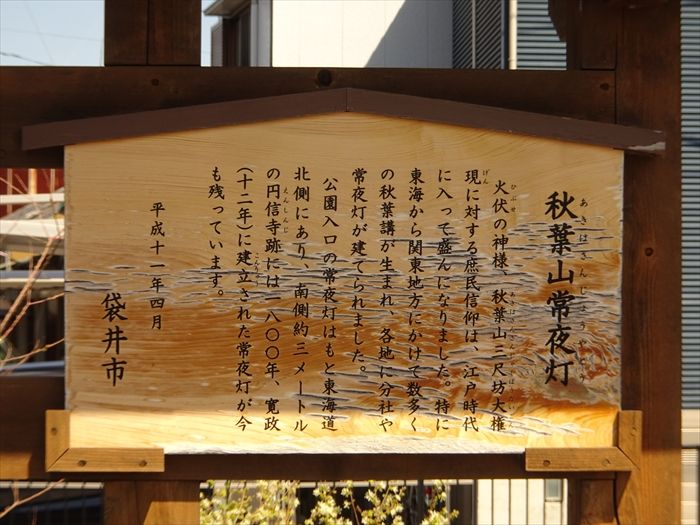 秋葉山常夜灯
あきはさんじょうやとう
火伏の神様、秋葉山三尺坊大権
ひぶせ
現に対する庶民信仰は、江戸時代
げん
に入って盛んになりました。特に
東海から関東地方にかけて数多く
の秋葉講が生まれ、各地に分社や
常夜灯が建てられました。
公園入口の常夜灯はもと東海道
北側にあり、南側約三メートル
の円信寺跡には一八〇〇年、寛政
えんしんじ
(十二年)に建立された常夜灯が今
こんりゅう
も残っています。
平成十一年四月
袋井市